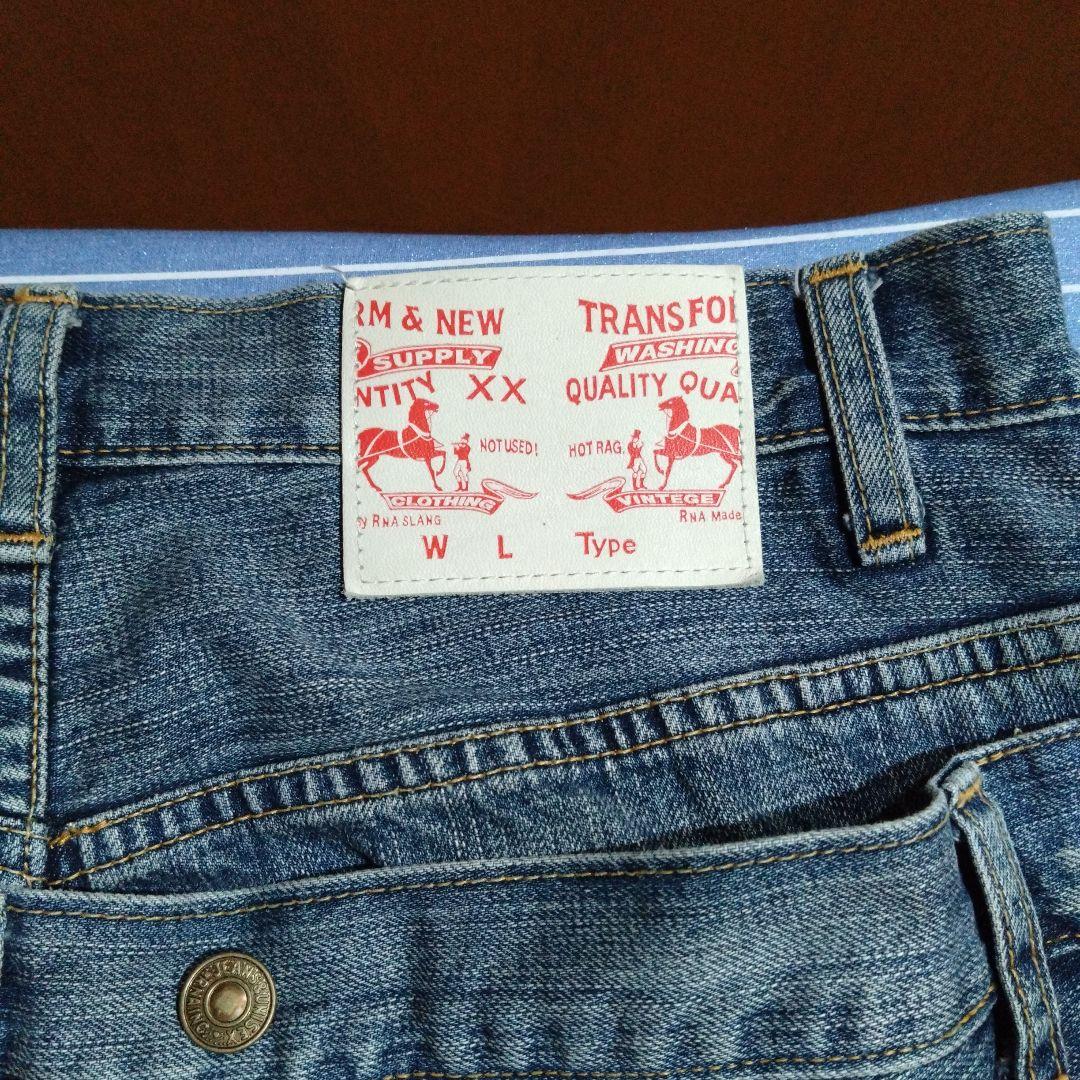 RM & NEW TRANSFO
SUPPLY WASHING
NTITY XX QUALITY QUA
NOT USED! HOT RAG.
CLOTHING VINTEGE
y RNA SLANG RNA Made
W L Type
JEANS UNISEX